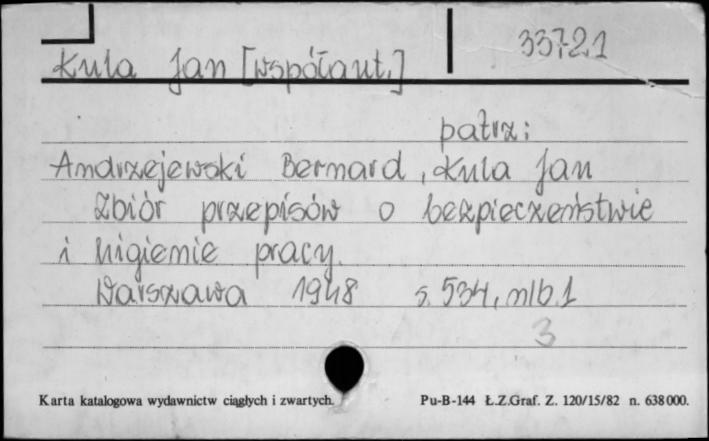 33721
Kula Jan [współaut.]
patrz:
Andrzejewski Bernard, Kula Jan
Zbiór przepisów o bezpieczeństwie
i higienie pracy.
Warszawa 1948 s. 534, nlb. 1
3
Karta katalogowa wydawnictw ciągłych i zwartych. Pu-B-144 Ł.Z.Graf. Z. 120/15/82 n. 638000.